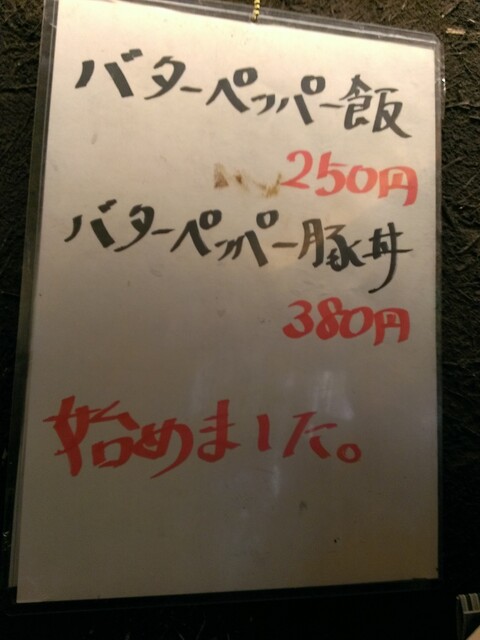 バターペッパー飯
250円
バターペッパー豚丼
380円
始めました。